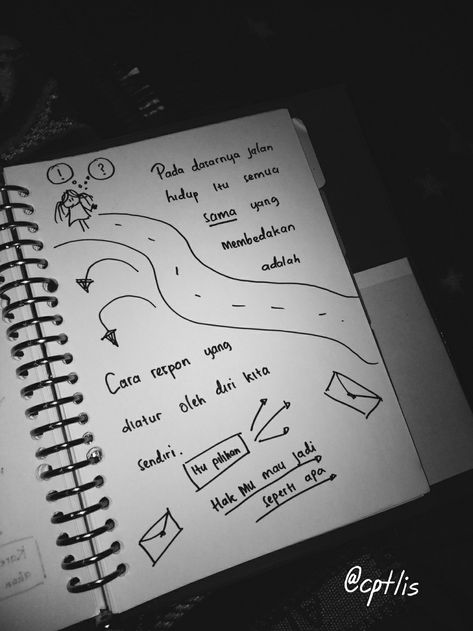 ! ?
Pada dasarnya jalan
hidup itu semua
sama yang
membedakan
adalah
Cara respon yang
diatur oleh diri kita
sendiri.
Itu pilihan
Hak Mu mau jadi
seperti apa
@cptlis